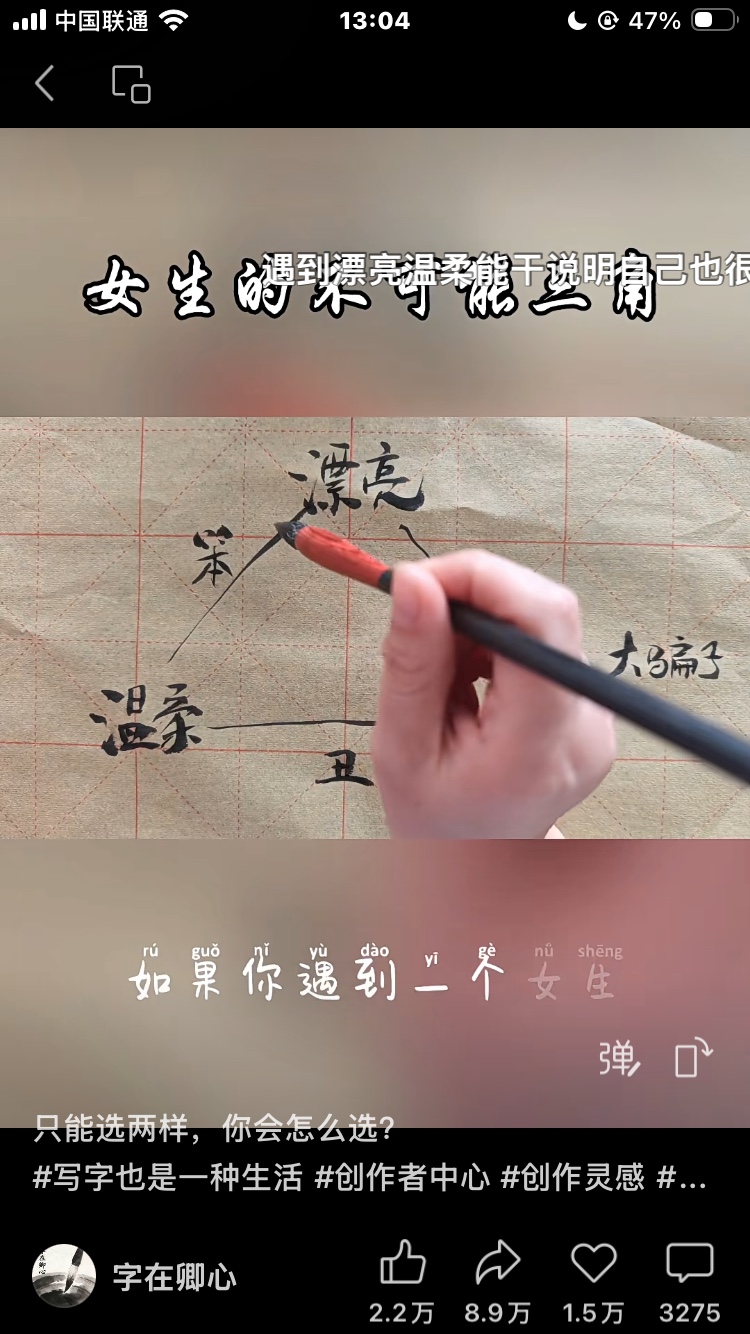 中国联通
13:04
47%
女生的不可能三角
遇到漂亮温柔能干说明自己也很
漂亮
笨
大骗子
温柔
丑
rú guǒ nǐ yù dào yī gè nǚ shēng
如果你遇到一个女生
弹
只能选两样，你会怎么选?
#写字也是一种生活 #创作者中心 #创作灵感 #...
字在卿心
2.2万
8.9万
1.5万
3275